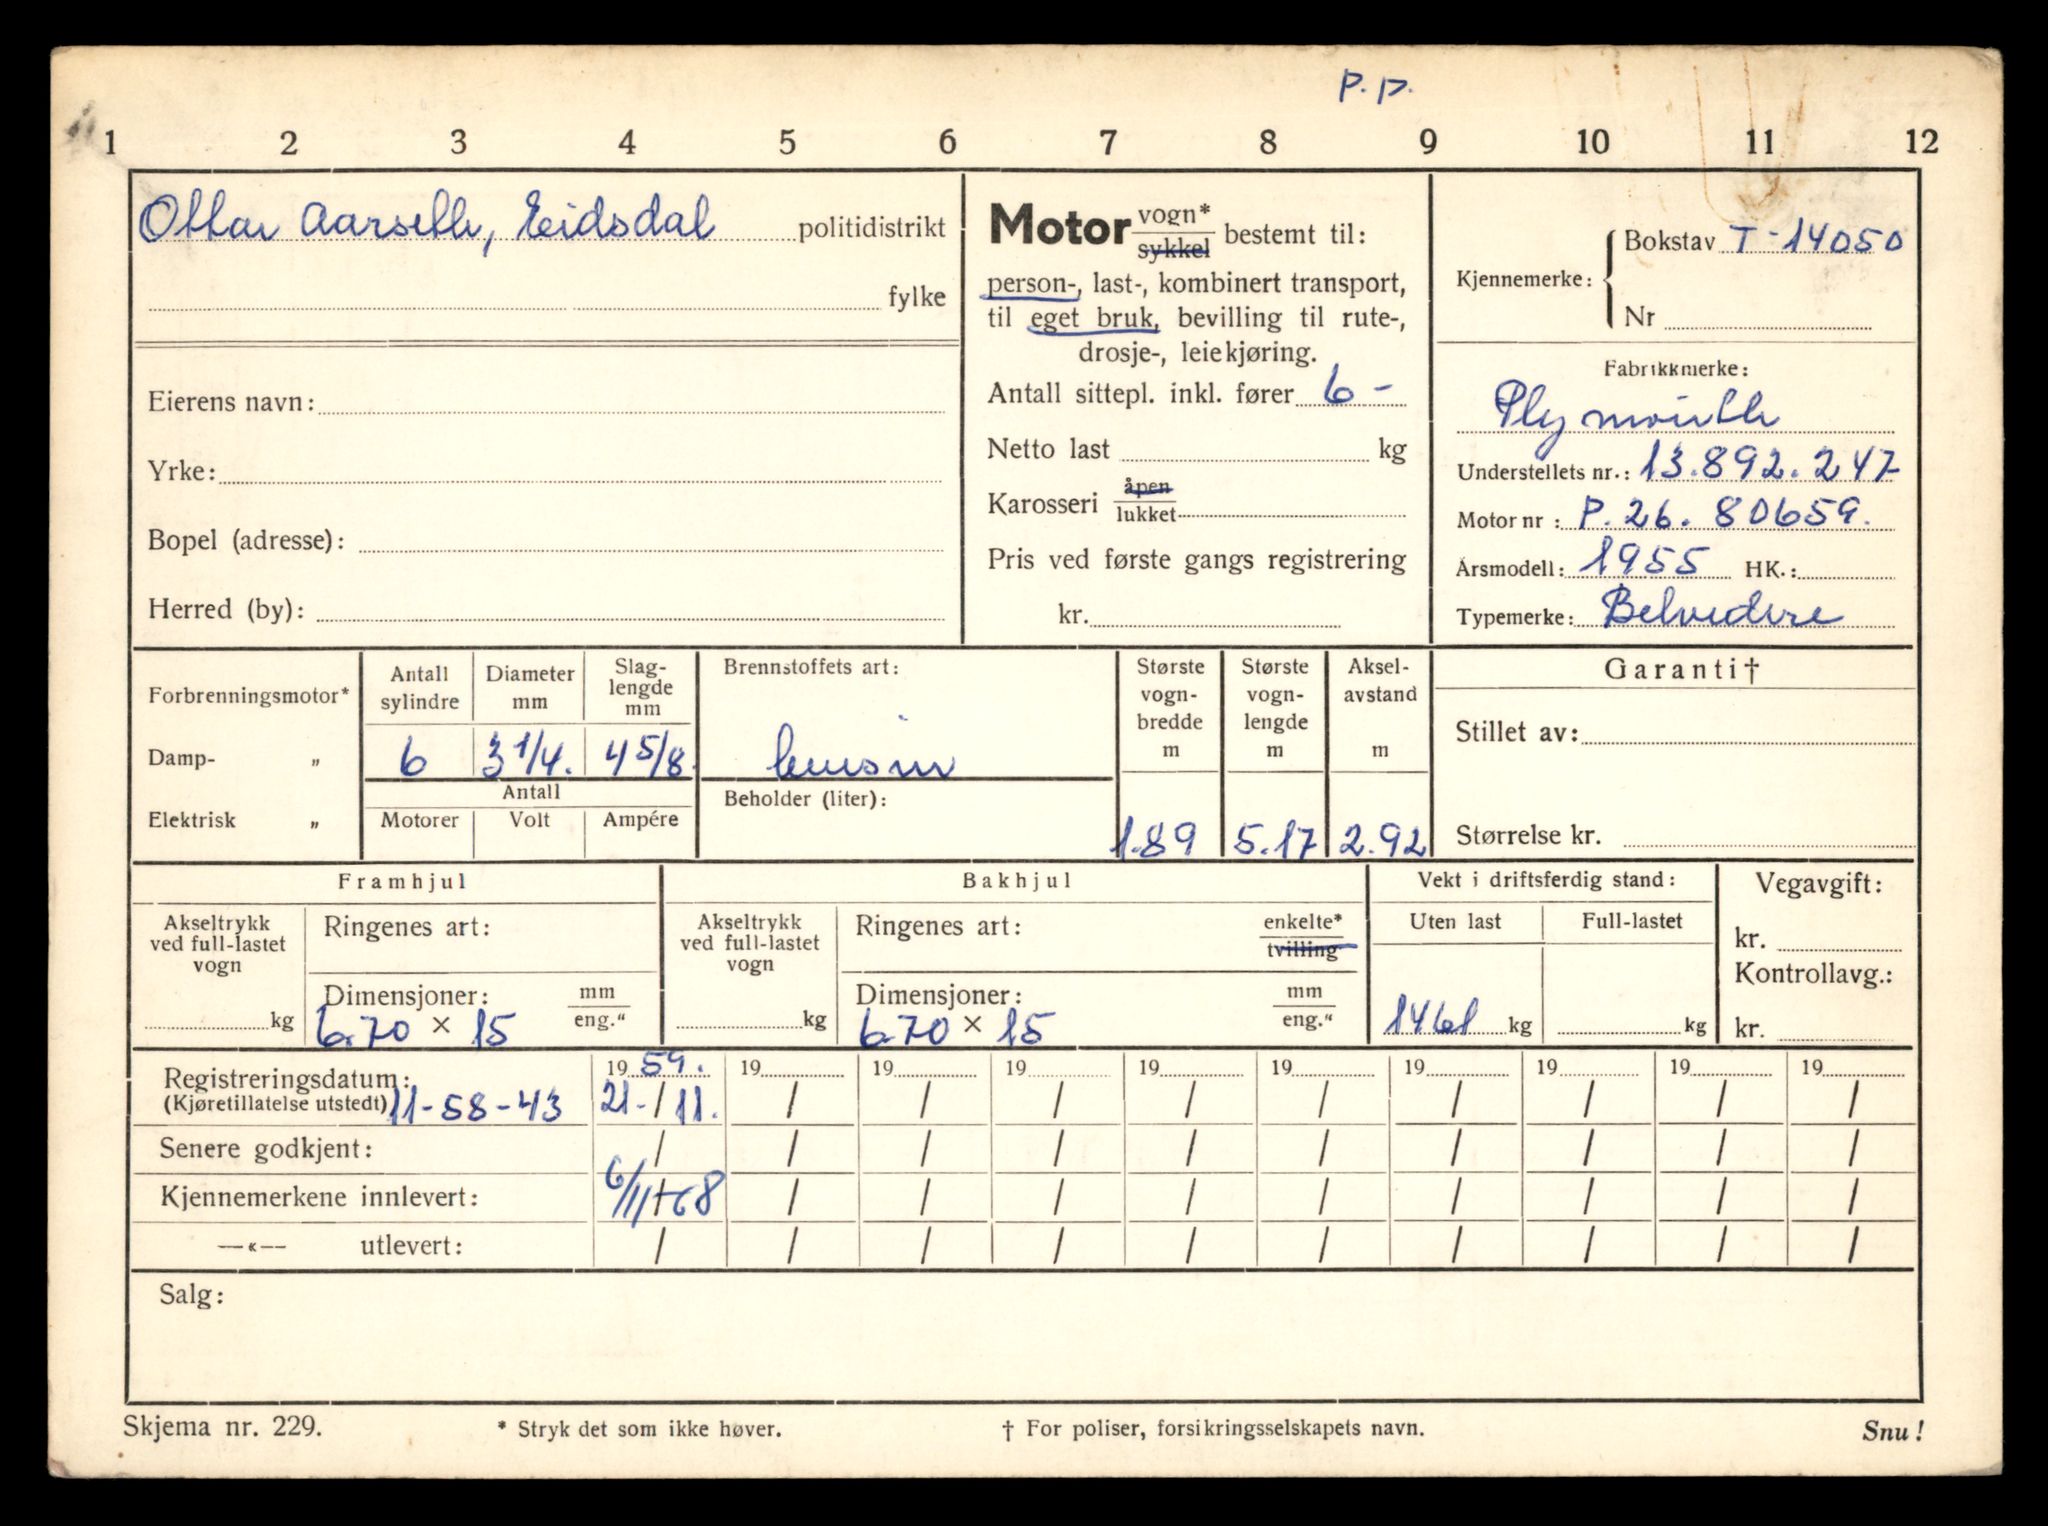 P.P.
1 2 3 4 5 6 7 8 9 10 11 12
Ottar Aarseth, Eidsdal politidistrikt
fylke
Eierens navn:
Yrke:
Bopel (adresse):
Herred (by):
Motor vogn* sykkel bestemt til:
person-, last-, kombinert transport,
til eget bruk, bevilling til rute-,
drosje-, leiekjøring.
Antall sittepl. inkl. fører 6 -
Netto last kg
Karosseri åpen lukket
Pris ved første gangs registrering
kr.
Kjennemerke: Bokstav T-14050
Nr
Fabrikkmerke:
Plymouth
Understellets nr.: 13.892.247
Motor nr : P.26.80659.
Årsmodell: 1955 HK.:
Typemerke: Belvedere
Forbrenningsmotor*
Damp- „
Elektrisk „
Antall sylindre
Diameter mm
Slag-lengde mm
6 3 1/4. 4 5/8.
Antall
Motorer Volt Ampére
Brennstoffets art:
bensin
Beholder (liter):
Største vogn-bredde m
1.89
Største vogn-lengde m
5.17
Aksel-avstand m
2.92
Garanti†
Stillet av:
Størrelse kr.
Framhjul
Akseltrykk ved full-lastet vogn
kg
Ringenes art:
Dimensjoner: mm eng."
6.70 × 15
Bakhjul
Akseltrykk ved full-lastet vogn
kg
Ringenes art: enkelte* tvilling
Dimensjoner: mm eng."
6.70 × 15
Vekt i driftsferdig stand:
Uten last Full-lastet
1461 kg kg
Vegavgift:
kr.
Kontrollavg.:
kr.
Registreringsdatum:
(Kjøretillatelse utstedt) 11-58-43
19 59. 19 19 19 19 19 19 19 19 19
21./11. / / / / / / / / /
Senere godkjent: / / / / / / / / / /
Kjennemerkene innlevert: 6/11-68 / / / / / / / / /
—«— utlevert: / / / / / / / / / /
Salg:
Skjema nr. 229.
* Stryk det som ikke høver.
† For poliser, forsikringsselskapets navn.
Snu!